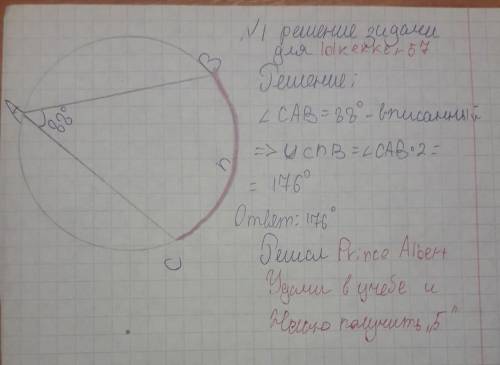 √1 решение задачи
для lolkekker57
Решение:
∠CAB=88°-вписанный
=> ∪CnB=∠CAB·2=
= 176°
Ответ: 176°
Решал Prince Albert
Удачи в учебе и
получить „5"
A
B
C
n
88°